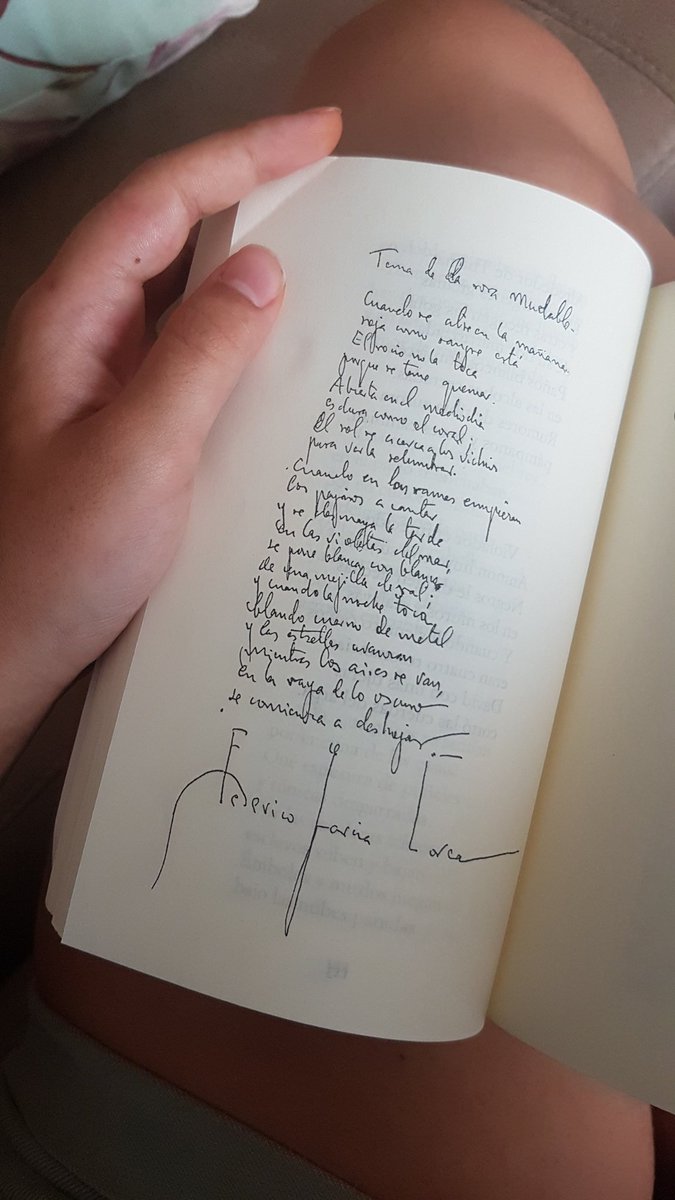 Tema de la rosa mudable.-
Cuando se abre en la mañana.
roja como sangre está
El rocio no la toca
porque se teme quemar.
Abierta en el mediodía
es dura como el coral;
El sol se a los vidrios
para verla relumbrar.
Cuando en las ramas empiezan
los pájaros a cantar
y se desmaya la tarde
en las violetas del mar,
se pone blanca, con blanco
de una mejilla de sal;
y cuando la noche toca
blando cuerno de metal
y las estrellas avanzan
mientras los aires se van,
en la raya de lo oscuro
se comienza a deshojar.-
Federico García Lorca